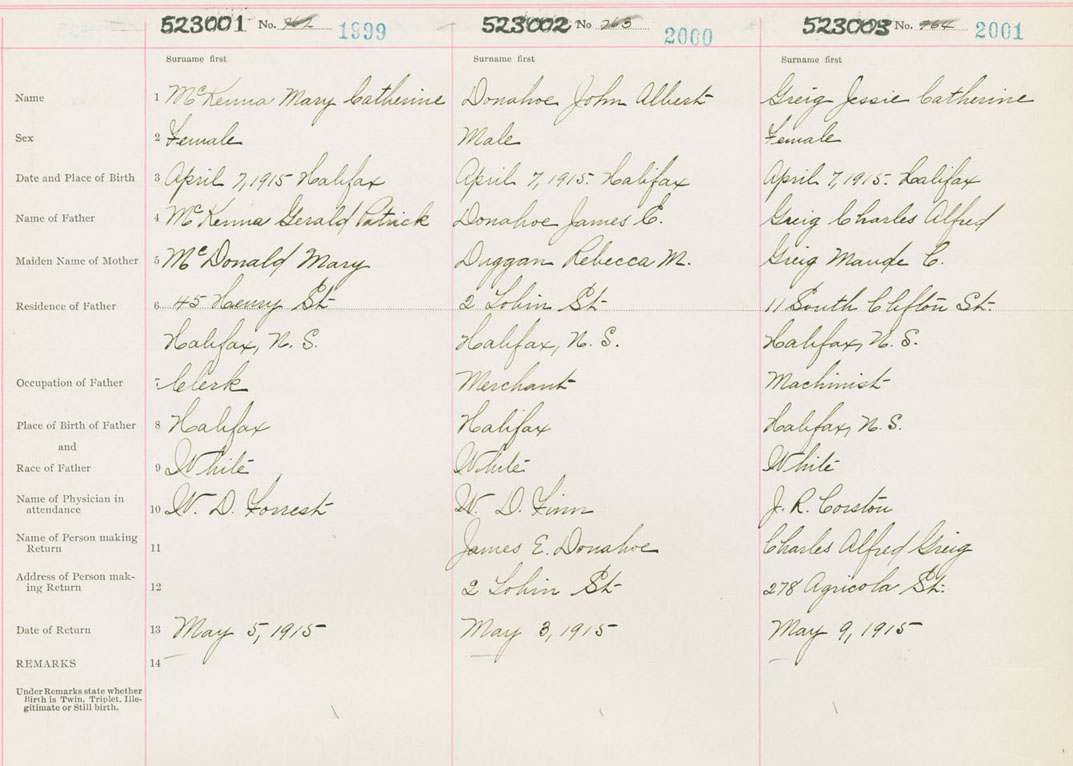 523001 No. 1999 523002 No. 263 2000 523003 No. 2001
Surname first Surname first Surname first
Name 1 McKenna Mary Catherine Donahoe John Albert Greig Jessie Catherine
Sex 2 Female Male Female
Date and Place of Birth 3 April 7, 1915 Halifax April 7, 1915. Halifax April 7, 1915. Halifax
Name of Father 4 McKenna Gerald Patrick Donahoe James E. Greig Charles Alfred
Maiden Name of Mother 5 McDonald Mary Duggan Rebecca M. Greig Maude C.
Residence of Father 6 45 Henry St 2 Lobin St 11 South Clifton St.
Halifax, N. S. Halifax, N. S. Halifax, N. S.
Occupation of Father 7 Clerk Merchant Machinist
Place of Birth of Father 8 Halifax Halifax Halifax, N. S.
and
Race of Father 9 White White White
Name of Physician in
attendance 10 W. D. Forrest W. D. Finn J. R. Corston
Name of Person making
Return 11 James E. Donahoe Charles Alfred Greig
Address of Person mak-
ing Return 12 2 Lobin St 278 Agricola St.
Date of Return 13 May 5, 1915 May 3, 1915 May 9, 1915
REMARKS 14
Under Remarks state whether
Birth is Twin, Triplet, Ille-
gitimate or Still birth.